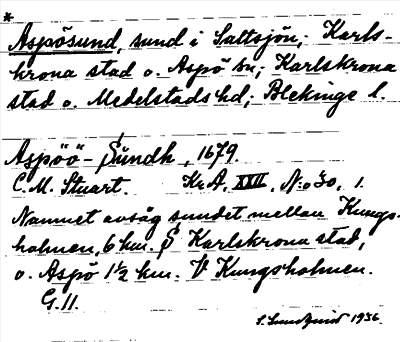 *
Aspösund, sund i Saltsjön; Karls-
krona stad o. Aspö sn; Karlskrona
stad o. Medelstads hd; Blekinge l.
Aspöö-Sündh, 1679.
C. M. Stuart. Kr.A, XXII, N:o 30, 1.
Namnet avsåg sundet mellan Kungs-
holmen, 6 km. S Karlskrona stad,
o. Aspö 1 1/2 km. V Kungsholmen.
G. 11.
S. Lundquist 1936.